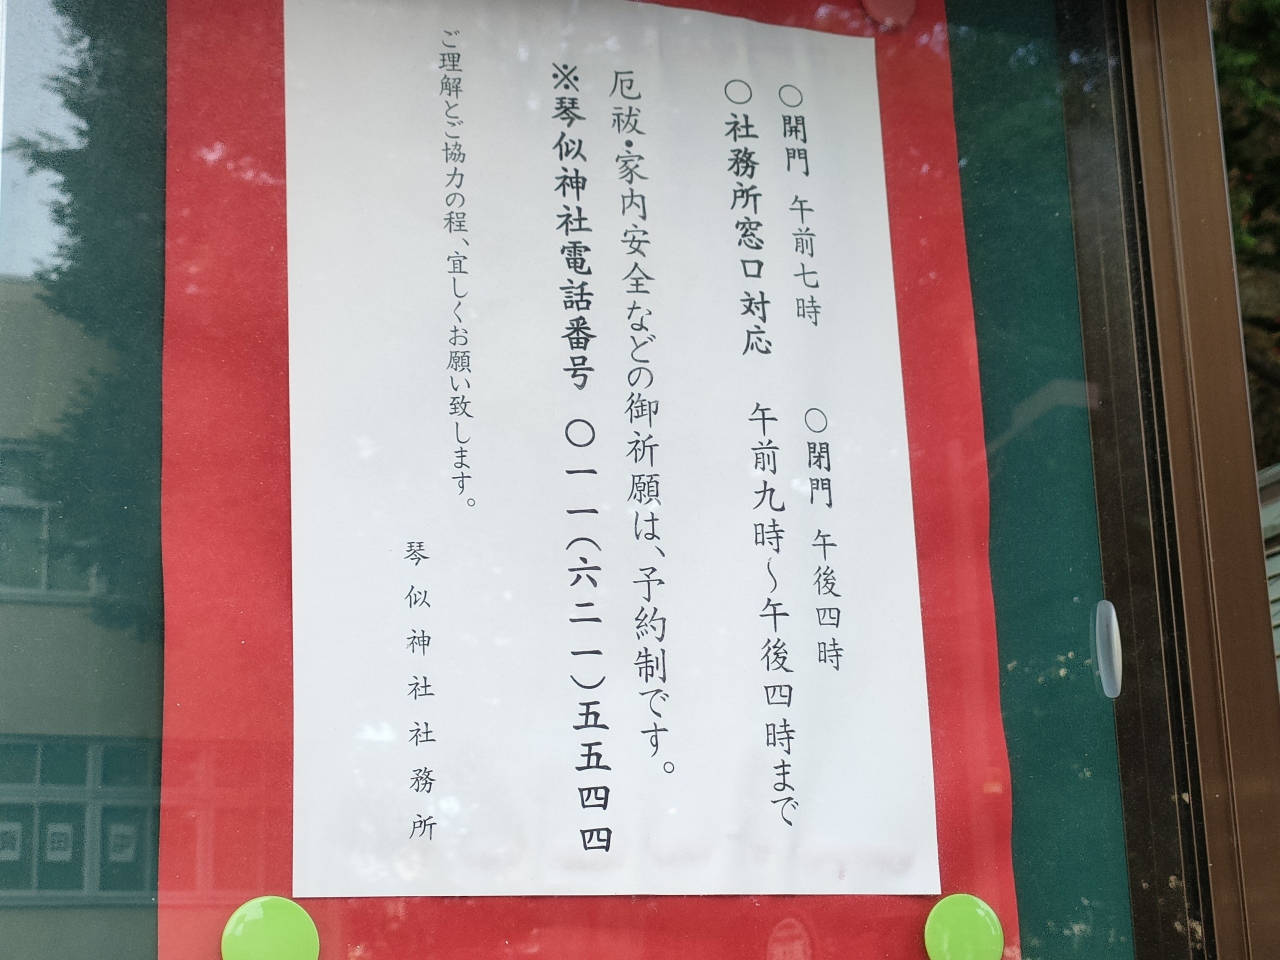 〇開門 午前七時 〇閉門 午後四時
〇社務所窓口対応 午前九時～午後四時まで
厄祓・家内安全などの御祈願は、予約制です。
※琴似神社電話番号 〇一一(六二一)五五四四
ご理解とご協力の程、宜しくお願い致します。
琴似神社社務所